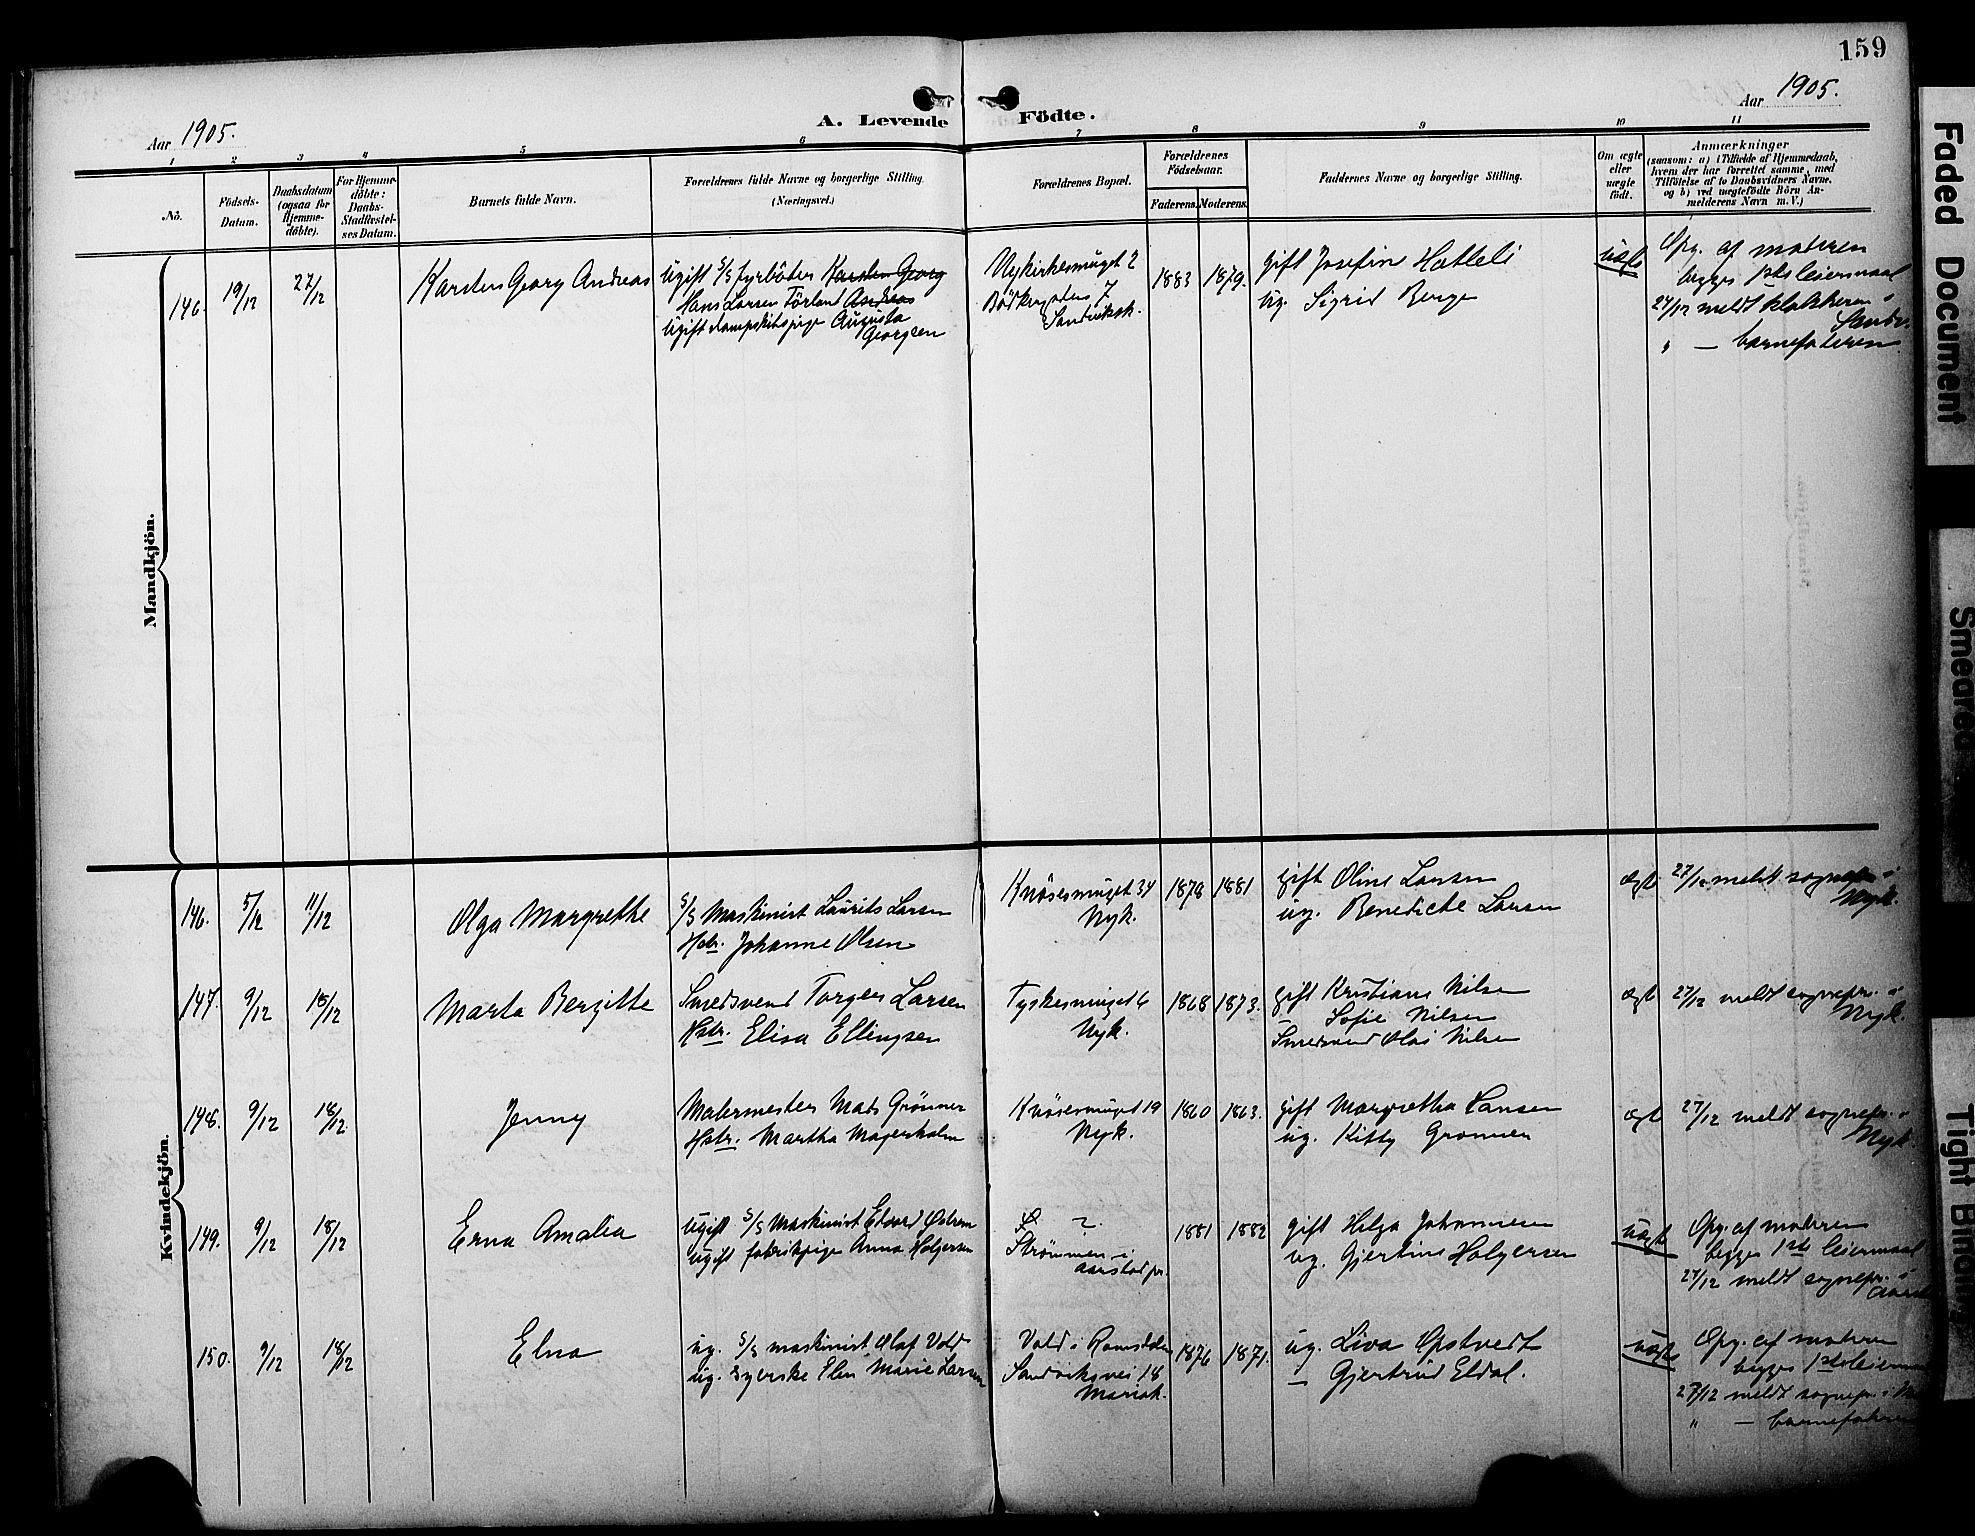 159
Aar 1905.
A. Levende Födte.
Aar 1905.
1 2 3 4 5 6 7 8 9 10 11
No.
Födsels-
Datum.
Daabsdatum
(ogsaa for
Hjemme-
döbte).
For Hjemme-
döbte:
Daabs-
Stadfæstel-
ses Datum.
Barnets fulde Navn.
Forældrenes fulde Navne og borgerlige Stilling.
(Næringsvei.)
Forældrenes Bopæl.
Forældrenes
Födselsaar.
Faderens. Moderens.
Faddernes Navne og borgerlige Stilling.
Om ægte
eller
uægte
födt.
Anmærkninger
(saasom: a) i Tilfælde af Hjemmedaab,
hvem der har forrettet samme, med
Tilföielse af to Daabsvidners Navne,
og b) ved uægtefödte Börn An-
melderens Navn m. V.)
Mandkjön.
146. 19/12 27/12
Karsten Georg Andreas
Ugift S/S fyrböter Karsten Georg
Hans Larsen Förland Andreas
Ugift dampskibspige Augusta
Georgsen
Nykirkesmuget 2
Bödkergaden 7
Sandviksk.
1883 1879.
gift Josefin Hatleli
ug. Sigrid Berge
uægte
Opg. af moderen
begges 1ste leiermaal
27/12 meldt klokkeren i
Sandv.
" — barnefaderen
Kvindekjön.
146. 5/12 11/12
Olga Margrethe
S/S Maskinist Laurits Larsen
Hstr. Johanne Olsen
Knösesmuget 34
Nyk.
1878 1881
gift Oline Larsen
ug. Benedicte Larsen
ægte
27/12 meldt sognepr. i
Nyk.
147. 9/12 18/12
Marta Bergitte
Smedsvend Torgeir Larsen
Hstr. Elisa Ellingsen
Tyskesmuget 6
Nyk.
1868 1873.
gift Kristiane Nilsen
Sofie Nilsen
Smedsvend Olai Nilsen
ægte
27/12 meldt sognepr. i
Nyk.
148. 9/12 18/12
Jenny
Malermester Mads Grönner
Hstr. Martha Majerholm
Knösesmuget 19
Nyk.
1860 1863.
gift Margretha Hansen
ug. Kitty Grönner
ægte
27/12 meldt sognepr. i
Nyk.
149. 9/12 18/12
Erna Amalia
Ugift S/S Maskinist Edvard
ugift fabrikpige Anna Holgersen
?
Strömmen i
Aarstad pr.
1881 1882
gift Helga Johannesen
ug. Gjertine Holgersen
uægte
Opg. af moderen
begges 1ste leiermaal
27/12 meldt sognepr. i
150. 9/12 18/12
Elna
ug. S/S maskinist Olaf Vold
ug. Syerske Elen Marie Larsen
Vold i Romsdalen
Sandviksvei 18
Mariak.
1876 1871.
ug. Liva Opstvedt
— Gjertrud Eldal.
uægte
Opg. af moderen
begges 1ste
27/12 meldt sognepr. i
" — barnefaderen
Faded Document
Smeared
Tight Binding